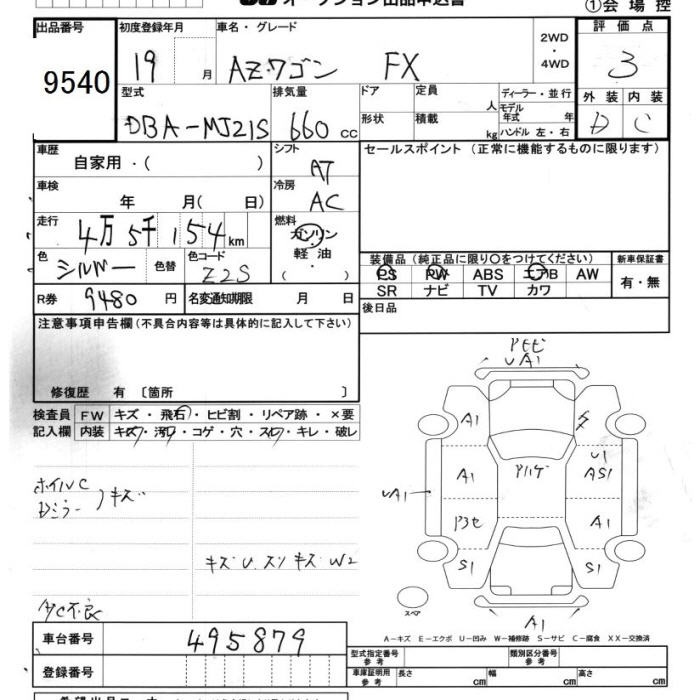 オークション出品申込書
①会場控
出品番号 9540
初度登録年月 19 月
車名・グレード AZワゴン FX
2WD ・ 4WD
評価点 3
型式 DBA-MJ21S
排気量 660 cc
ドア
定員 人
ディーラー・並行
形状
積載 kg
モデル年式 年
ハンドル 左・右
外装 内装
D C
車歴 自家用・( )
シフト AT
セールスポイント(正常に機能するものに限ります)
車検 年 月(日)
冷房 AC
走行 4万5千154km
燃料 ガソリン 軽油 ・( )
色 シルバー 色替
色コード Z2S
装備品(純正品に限り○をつけてください)
新車保証書
PS PW ABS エアB AW
有・無
SR ナビ TV カワ
R券 9480円
名変通知期限 月 日
後日品
注意事項申告欄(不具合内容等は具体的に記入して下さい)
修復歴 有〔箇所 〕
検査員 FW キズ・飛石・ヒビ割・リペア跡・×要
記入欄 内装 キズ・汚レ・コゲ・穴・スレ・キレ・破レ
UA1
A1
U1
A1 AS1
UA1
A1
S1 S1
ホイルC
Dミラー キズ
キズU.スリキズW2
スペア
A1
A-キズ E-エクボ U-凹み W-補修跡 S-サビ C-腐食 XX-交換済
車台番号 495879
登録番号
型式指定番号 参考
類別区分番号 参考
車庫証明用 参考 長さ cm 幅 cm 高さ cm